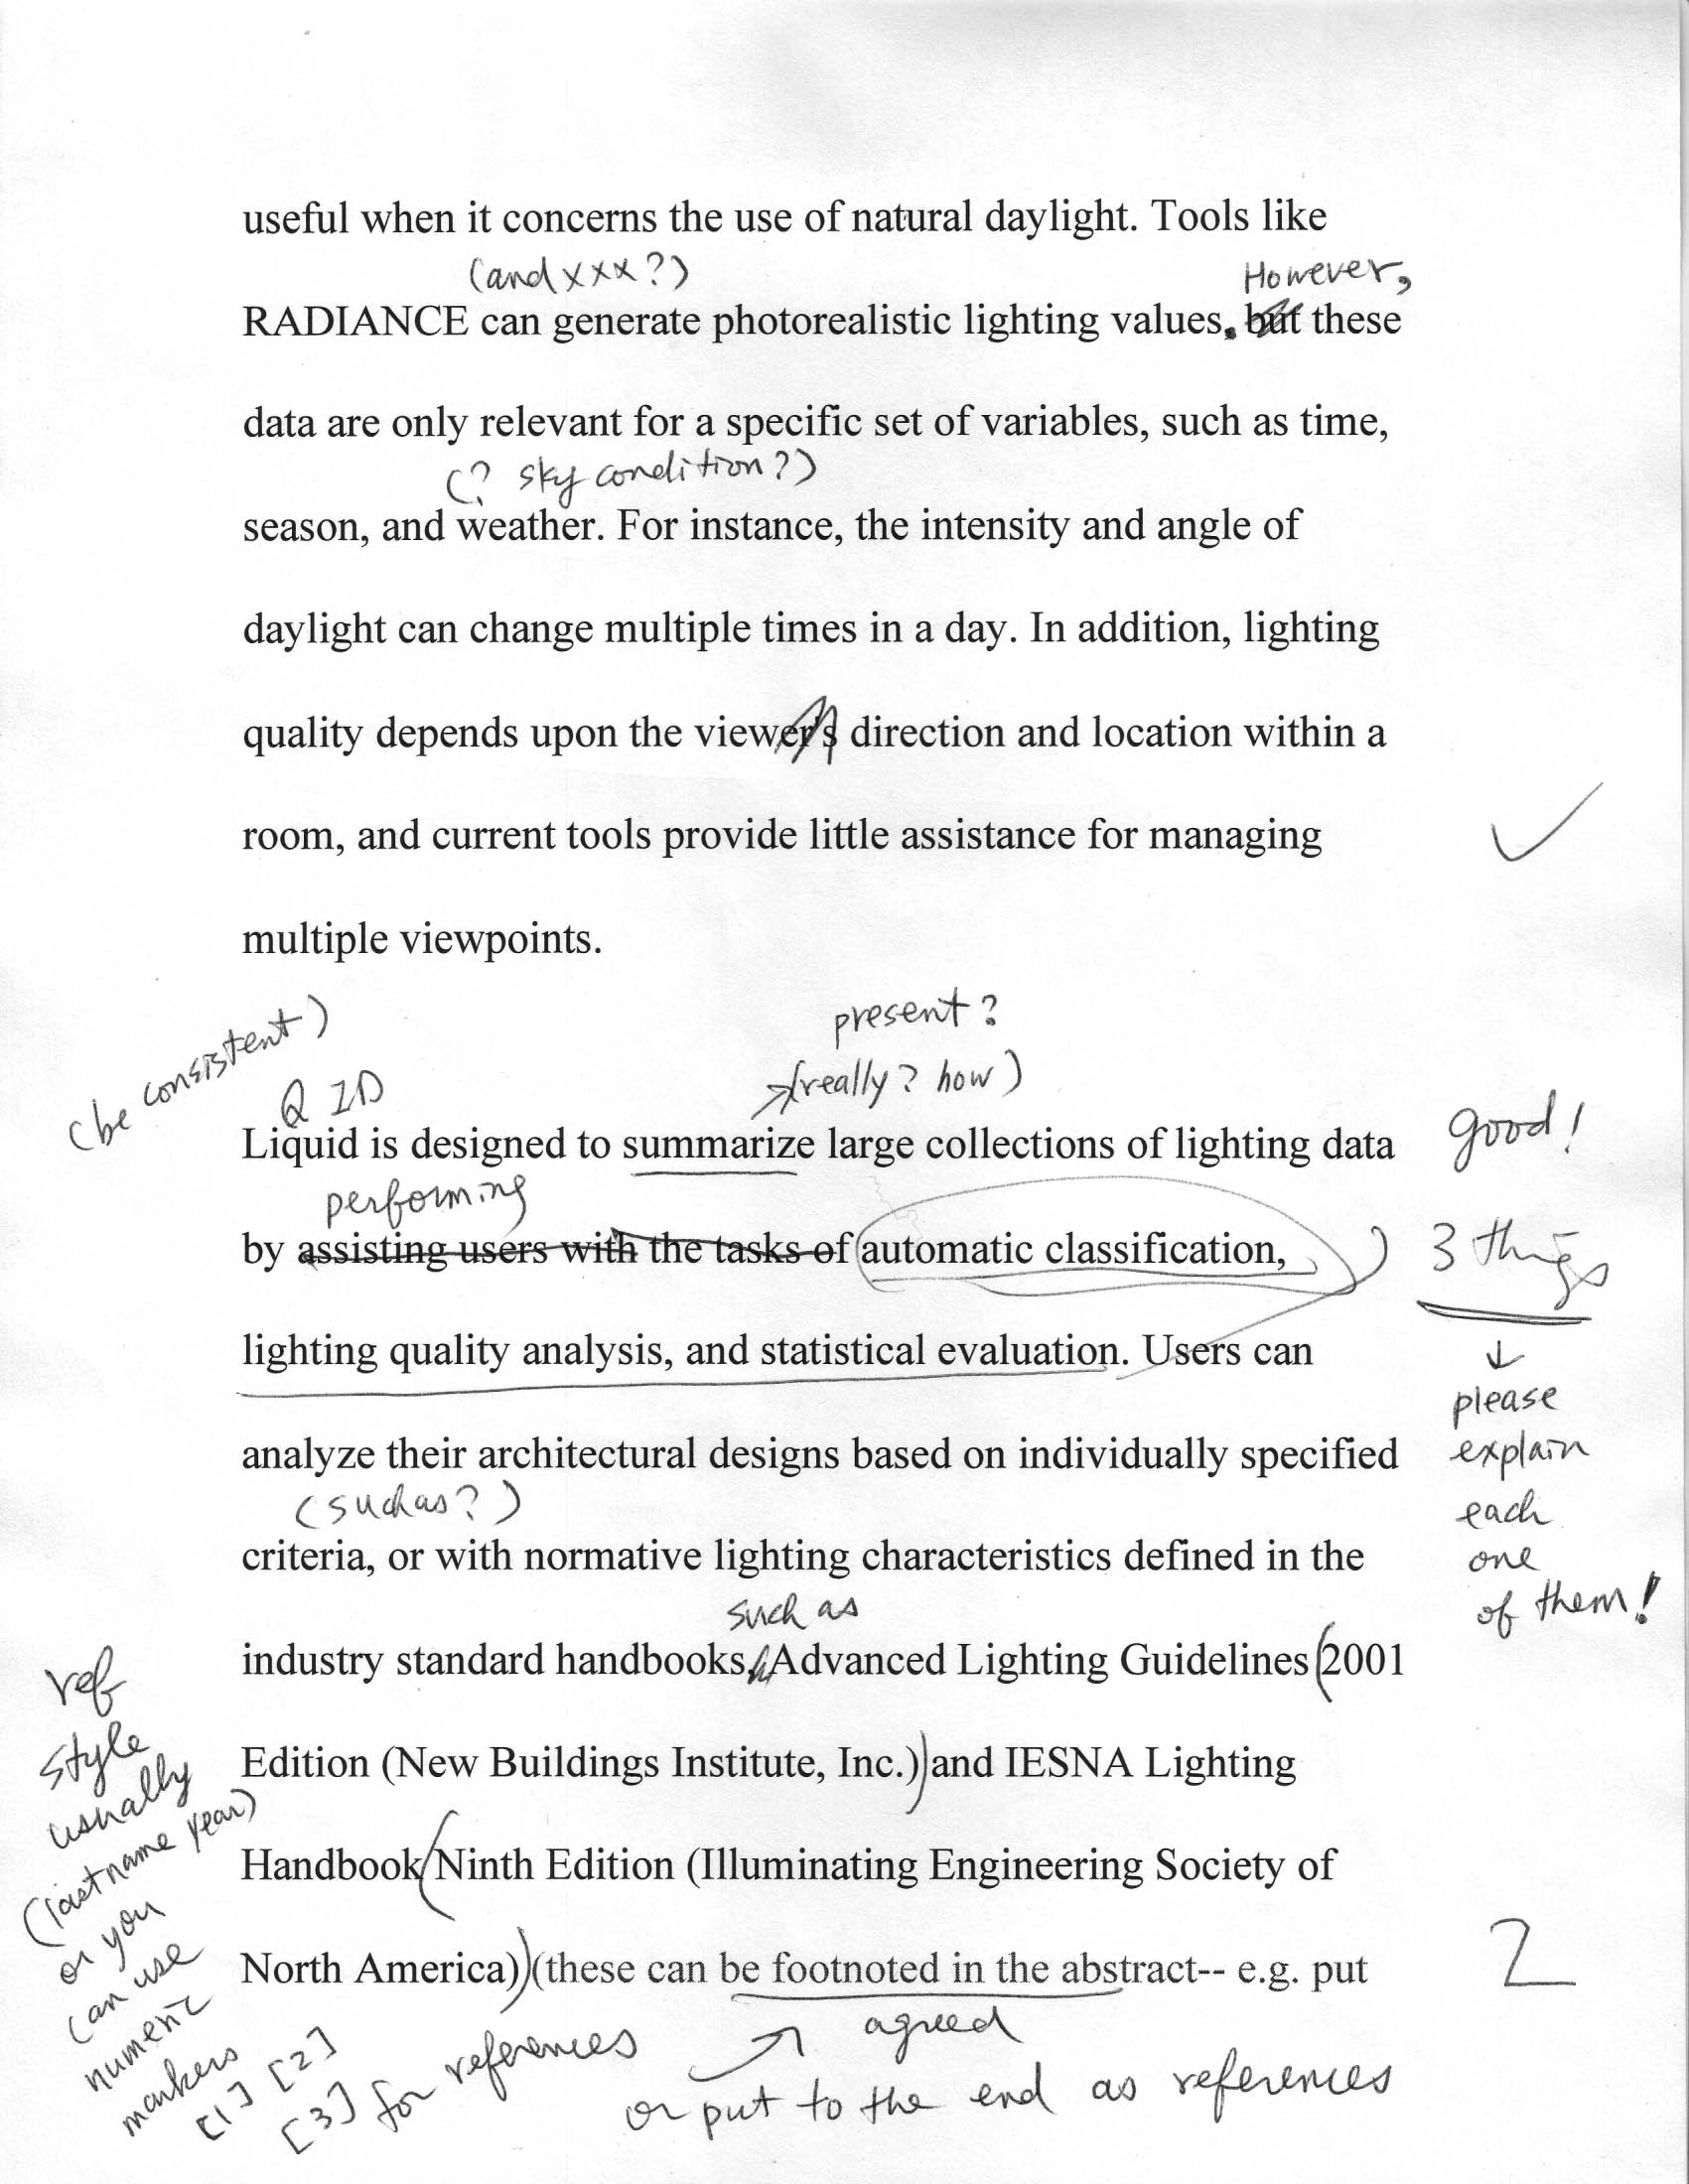 useful when it concerns the use of natural daylight. Tools like
(and xxx?) However,
RADIANCE can generate photorealistic lighting values. but these
data are only relevant for a specific set of variables, such as time,
(? sky condition?)
season, and weather. For instance, the intensity and angle of
daylight can change multiple times in a day. In addition, lighting
quality depends upon the viewer's direction and location within a
room, and current tools provide little assistance for managing
multiple viewpoints.
(be consistent)
present?
(really? how)
Q ID
Liquid is designed to summarize large collections of lighting data
good!
performing
by assisting users with the tasks of automatic classification,
) 3 things
lighting quality analysis, and statistical evaluation. Users can
↓
please
explain
each
one
of them!
analyze their architectural designs based on individually specified
(such as?)
criteria, or with normative lighting characteristics defined in the
such as
industry standard handbooks, Advanced Lighting Guidelines (2001
Edition (New Buildings Institute, Inc.)) and IESNA Lighting
Handbook (Ninth Edition (Illuminating Engineering Society of
North America)) (these can be footnoted in the abstract-- e.g. put
2
ref
style
usually
(lastname year)
or you
can use
numeric
markers
[1] [2]
[3] for references
agreed
or put to the end as references